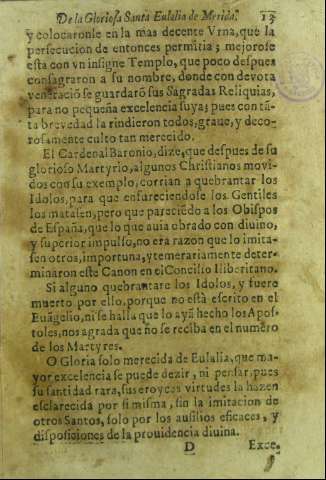 De la Gloriosa Santa Eulalia de Merida. 13
y colocaronle en la mas decente Vrna, que la
persecucion de entonces permitia; mejorose
esta con vn insigne Templo, que poco despues
consagraron a su nombre, donde con devota
veneraciō se guardarō sus Sagradas Reliquias,
para no pequeña excelencia suya; pues con tā-
ta brevedad la rindieron todos, graue, y deco-
rosamente culto tan merecido.
El Cardenal Baronio, dize, que despues de su
glorioso Martyrio, algunos Christianos movi-
dos con su exemplo, corrian a quebrantar los
Idolos, para que enfureciendose los Gentiles
los matasen, pero que pareciēdo a los Obispos
de España, que lo que auia obrado con diuino,
y superior impulso, no era razon que lo imita-
sen otros, importuna, y temerariamente deter-
minaron este Canon en el Concilio Iliberitano.
Si alguno quebrantare los Idolos, y fuere
muerto por ello, porque no està escrito en el
Euāgelio, ni se halla que lo ayā hecho los Apos-
toles, nos agrada que nō se reciba en el numero
de los Martyres.
O Gloria solo merecida de Eulalia, que ma-
yor excelencia se puede dezir, ni pensar, pues
su santidad rara, sus eroycas virtudes la hazen
esclarecida por si misma, sin la imitacion de
otros Santos, solo por los ausilios eficaces, y
disposiciones de la prouidencia diuina.
D Exce-